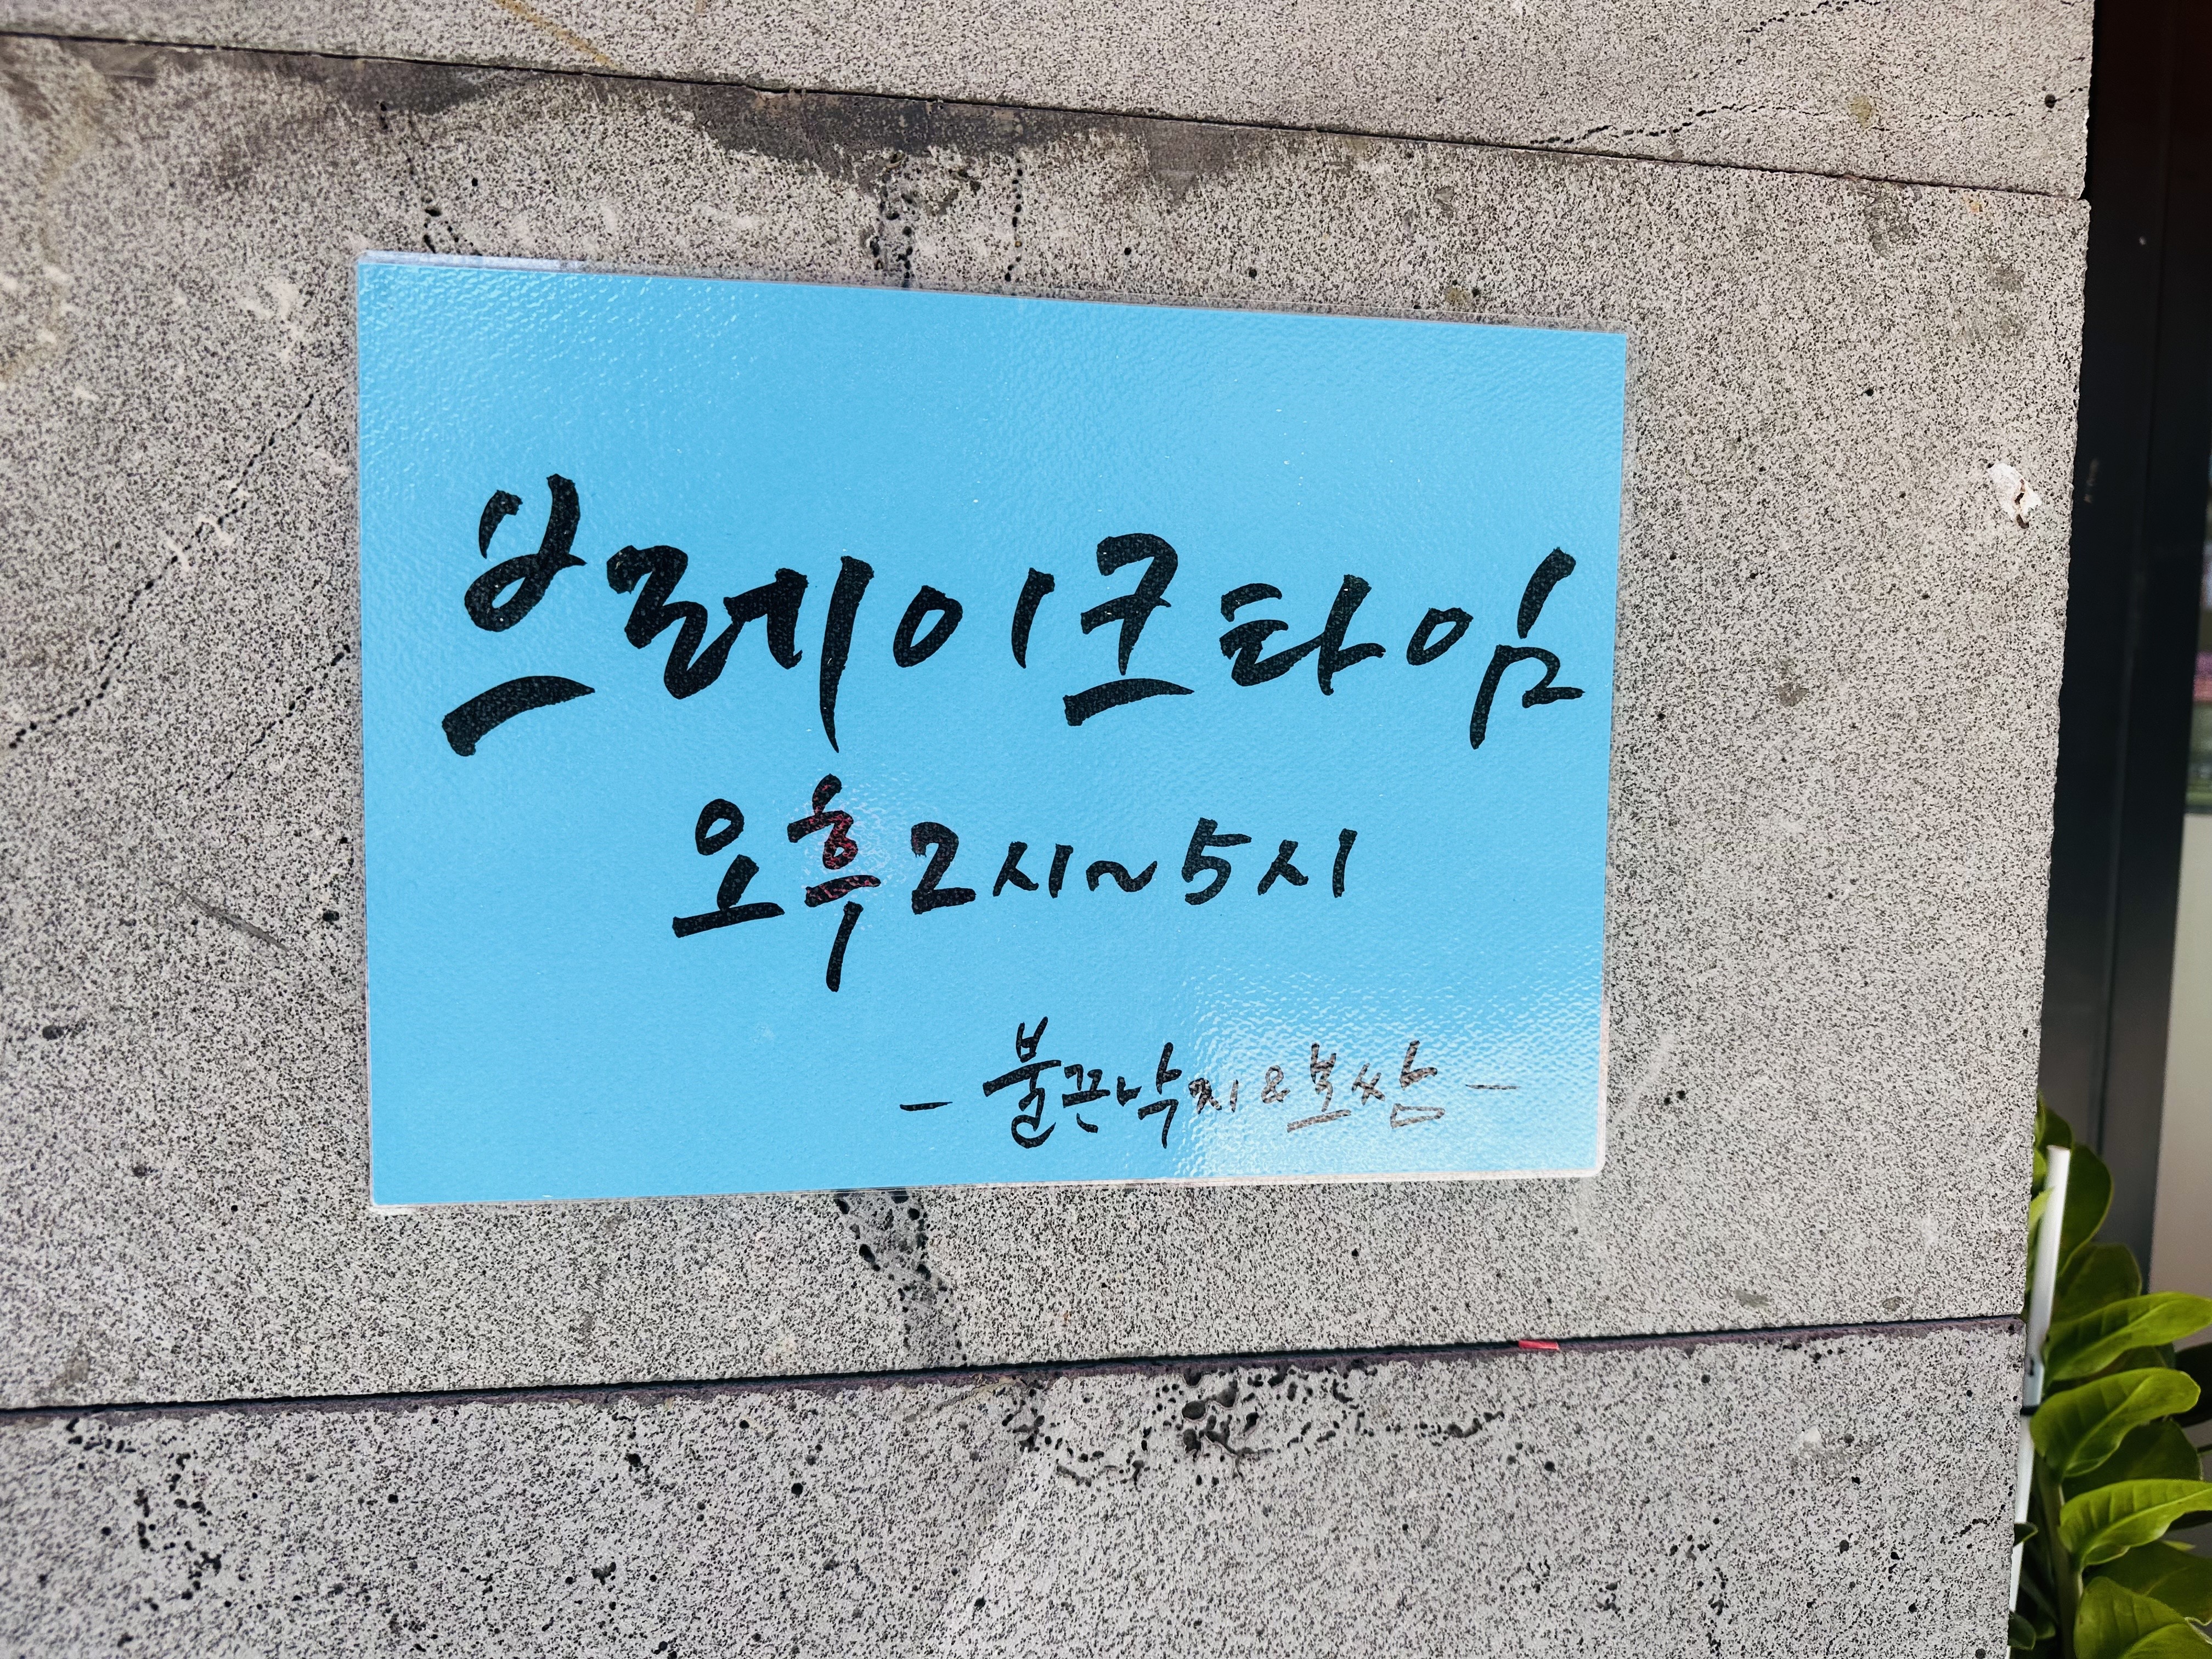 브레이크타임
오후 2시~5시
- 불끈낙지&보쌈 -